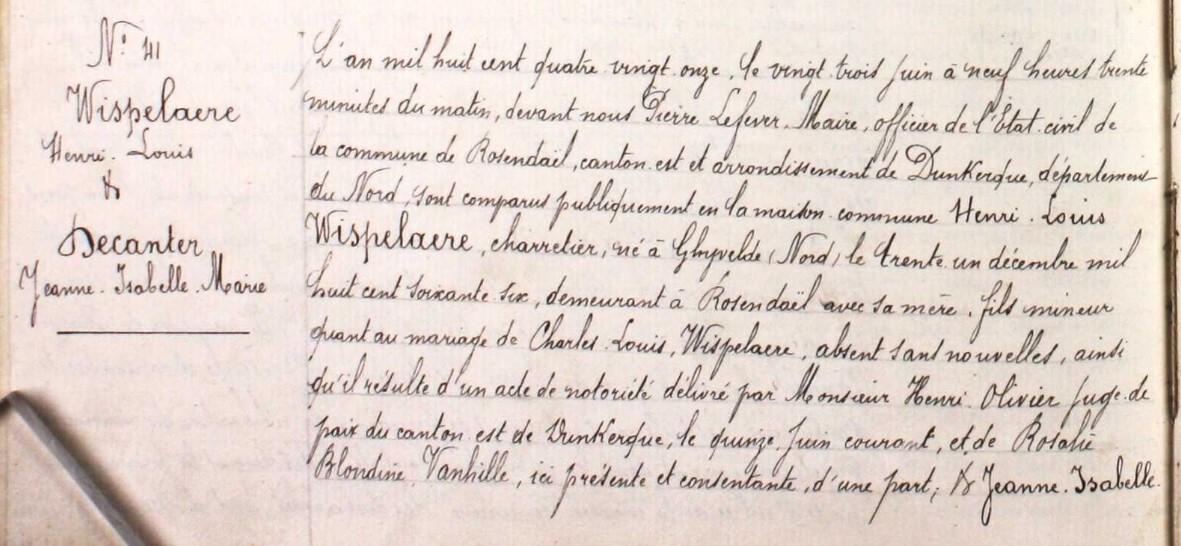 N° 41
Wispelaere
Henri. Louis
&
Decanter
Jeanne. Isabelle. Marie
L'an mil huit cent quatre vingt onze, le vingt trois Juin à neuf heures trente
minutes du matin, devant nous Pierre Lefever, Maire, officier de l'Etat civil de
la commune de Rosendaël, canton est et arrondissement de Dunkerque, département
du Nord, sont comparus publiquement en la maison commune Henri. Louis
Wispelaere, charretier, né à Ghyvelde (Nord) le trente un décembre mil
huit cent soixante six, demeurant à Rosendaël avec sa mère, fils mineur
quant au mariage de Charles. Louis, Wispelaere, absent sans nouvelles, ainsi
qu'il résulte d'un acte de notoriété délivré par Monsieur Henri. Olivier Juge de
paix du canton est de Dunkerque, le quinze Juin courant, et de Rosalie
Blondine Vanhille, ici présente et consentante, d'une part; & Jeanne. Isabelle.